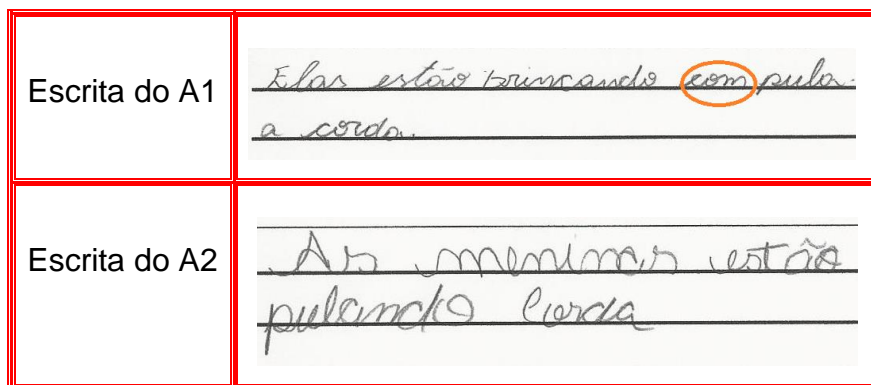 Escrita do A1
Elas estão brincando com pula
a corda.
Escrita do A2
As meninas estão
pulando corda